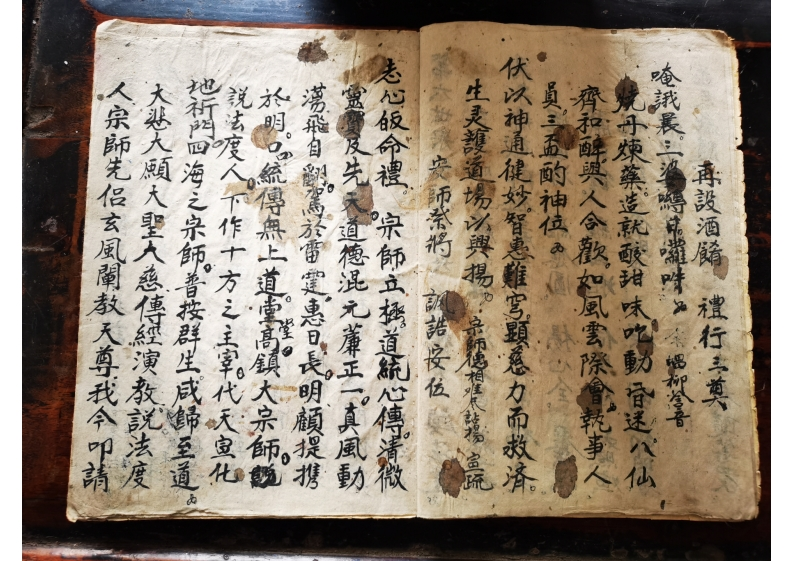 再設酒餚 禮行三奠
唵誐晨。三婆縛日囉吽
燒丹煉藥造就酸甜味吃動昏迷八仙
齊和醉與人合歡如風雲際會執事人
員。三盃酌神位
伏以神通健妙智惠難穹。顯慈力而救済。
生灵護道塲以興揚。 宣疏
安師 將 諷誥安位
志心皈命禮。宗師立極。道統心傳。清微
靈寶及先天。道德混元。㢘正一真風動
蕩飛自翩。駕於雷霆。惠日長明顧提携
於明。口統傳無上道。堂高鎮大宗師。
說法度人。下作十方之主宰。代天宣化
地祈門。四海之宗師。普按群生咸歸至道
大悲大願大聖大慈傳經演教説法度
人宗師先侣玄風闡教天尊我今叩請